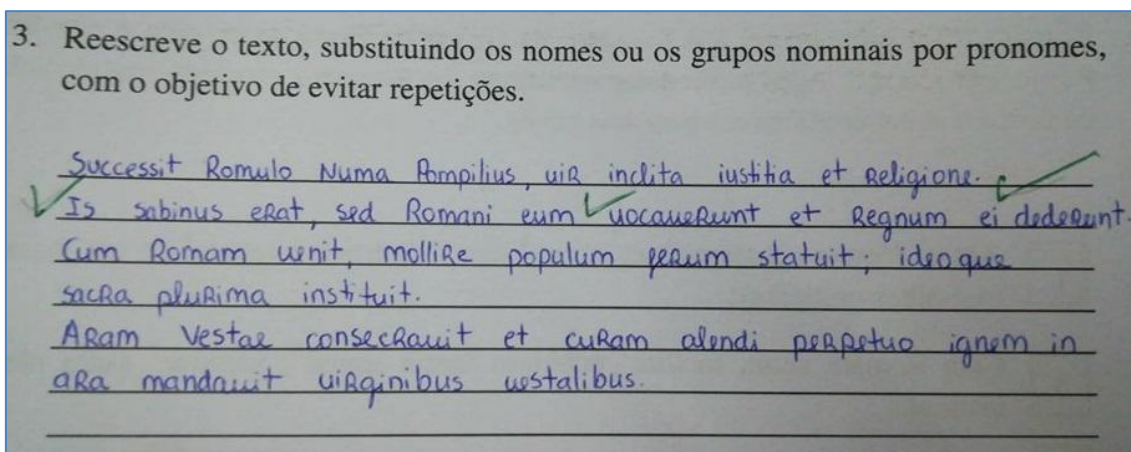 3. Reescreve o texto, substituindo os nomes ou os grupos nominais por pronomes,
com o objetivo de evitar repetições.
Successit Romulo Numa Pompilius, uir inclita iustitia et religione.
Is sabinus erat, sed Romani eum uocauerunt et regnum ei dederunt.
Cum Romam uenit, mollire populum ferum statuit; ideoque
sacra plurima instituit.
Aram Vestae consecrauit et curam alendi perpetuo ignem in
ara mandauit uirginibus uestalibus.